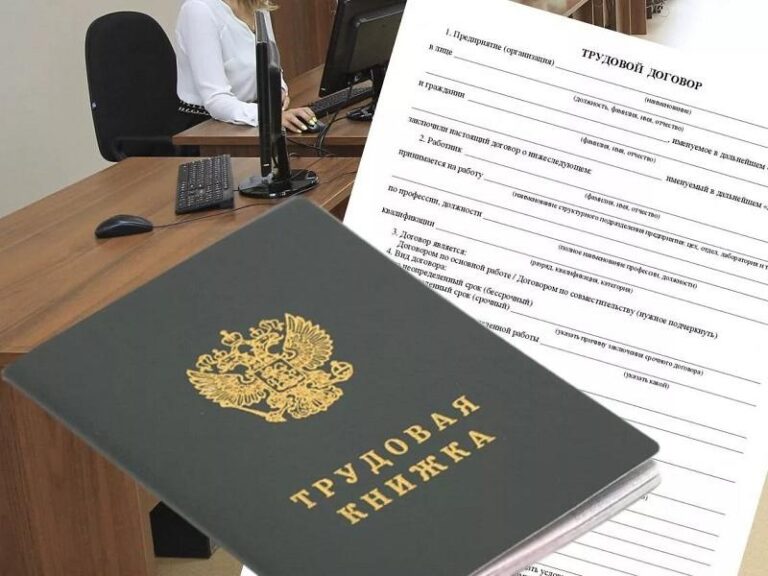 ТРУДОВОЙ ДОГОВОР
1. Предприятие (организация)
(наименование)
в лице
(должность, фамилия, имя, отчество)
, именуемое в дальнейшем
и гражданин
(фамилия, имя, отчество)
именуемый в дальнейшем
заключили настоящий договор о нижеследующем:
2. Работник
(фамилия, имя, отчество)
принимается на работу
(наименование структурного подразделения предприятия: цех, отдел, лаборатория и т
по профессии, должности
(полное наименование профессии, должности)
квалификации
(разряд, квалификация, категория)
3. Договор является:
Договором по основной работе / Договором по совместительству (нужное подчеркнуть)
4. Вид договора:
неопределенный срок (бессрочный)
срок (срочный)
(указать причину заключения срочного договора)
работы
(указать какой)
ТРУДОВАЯ
КНИЖКА